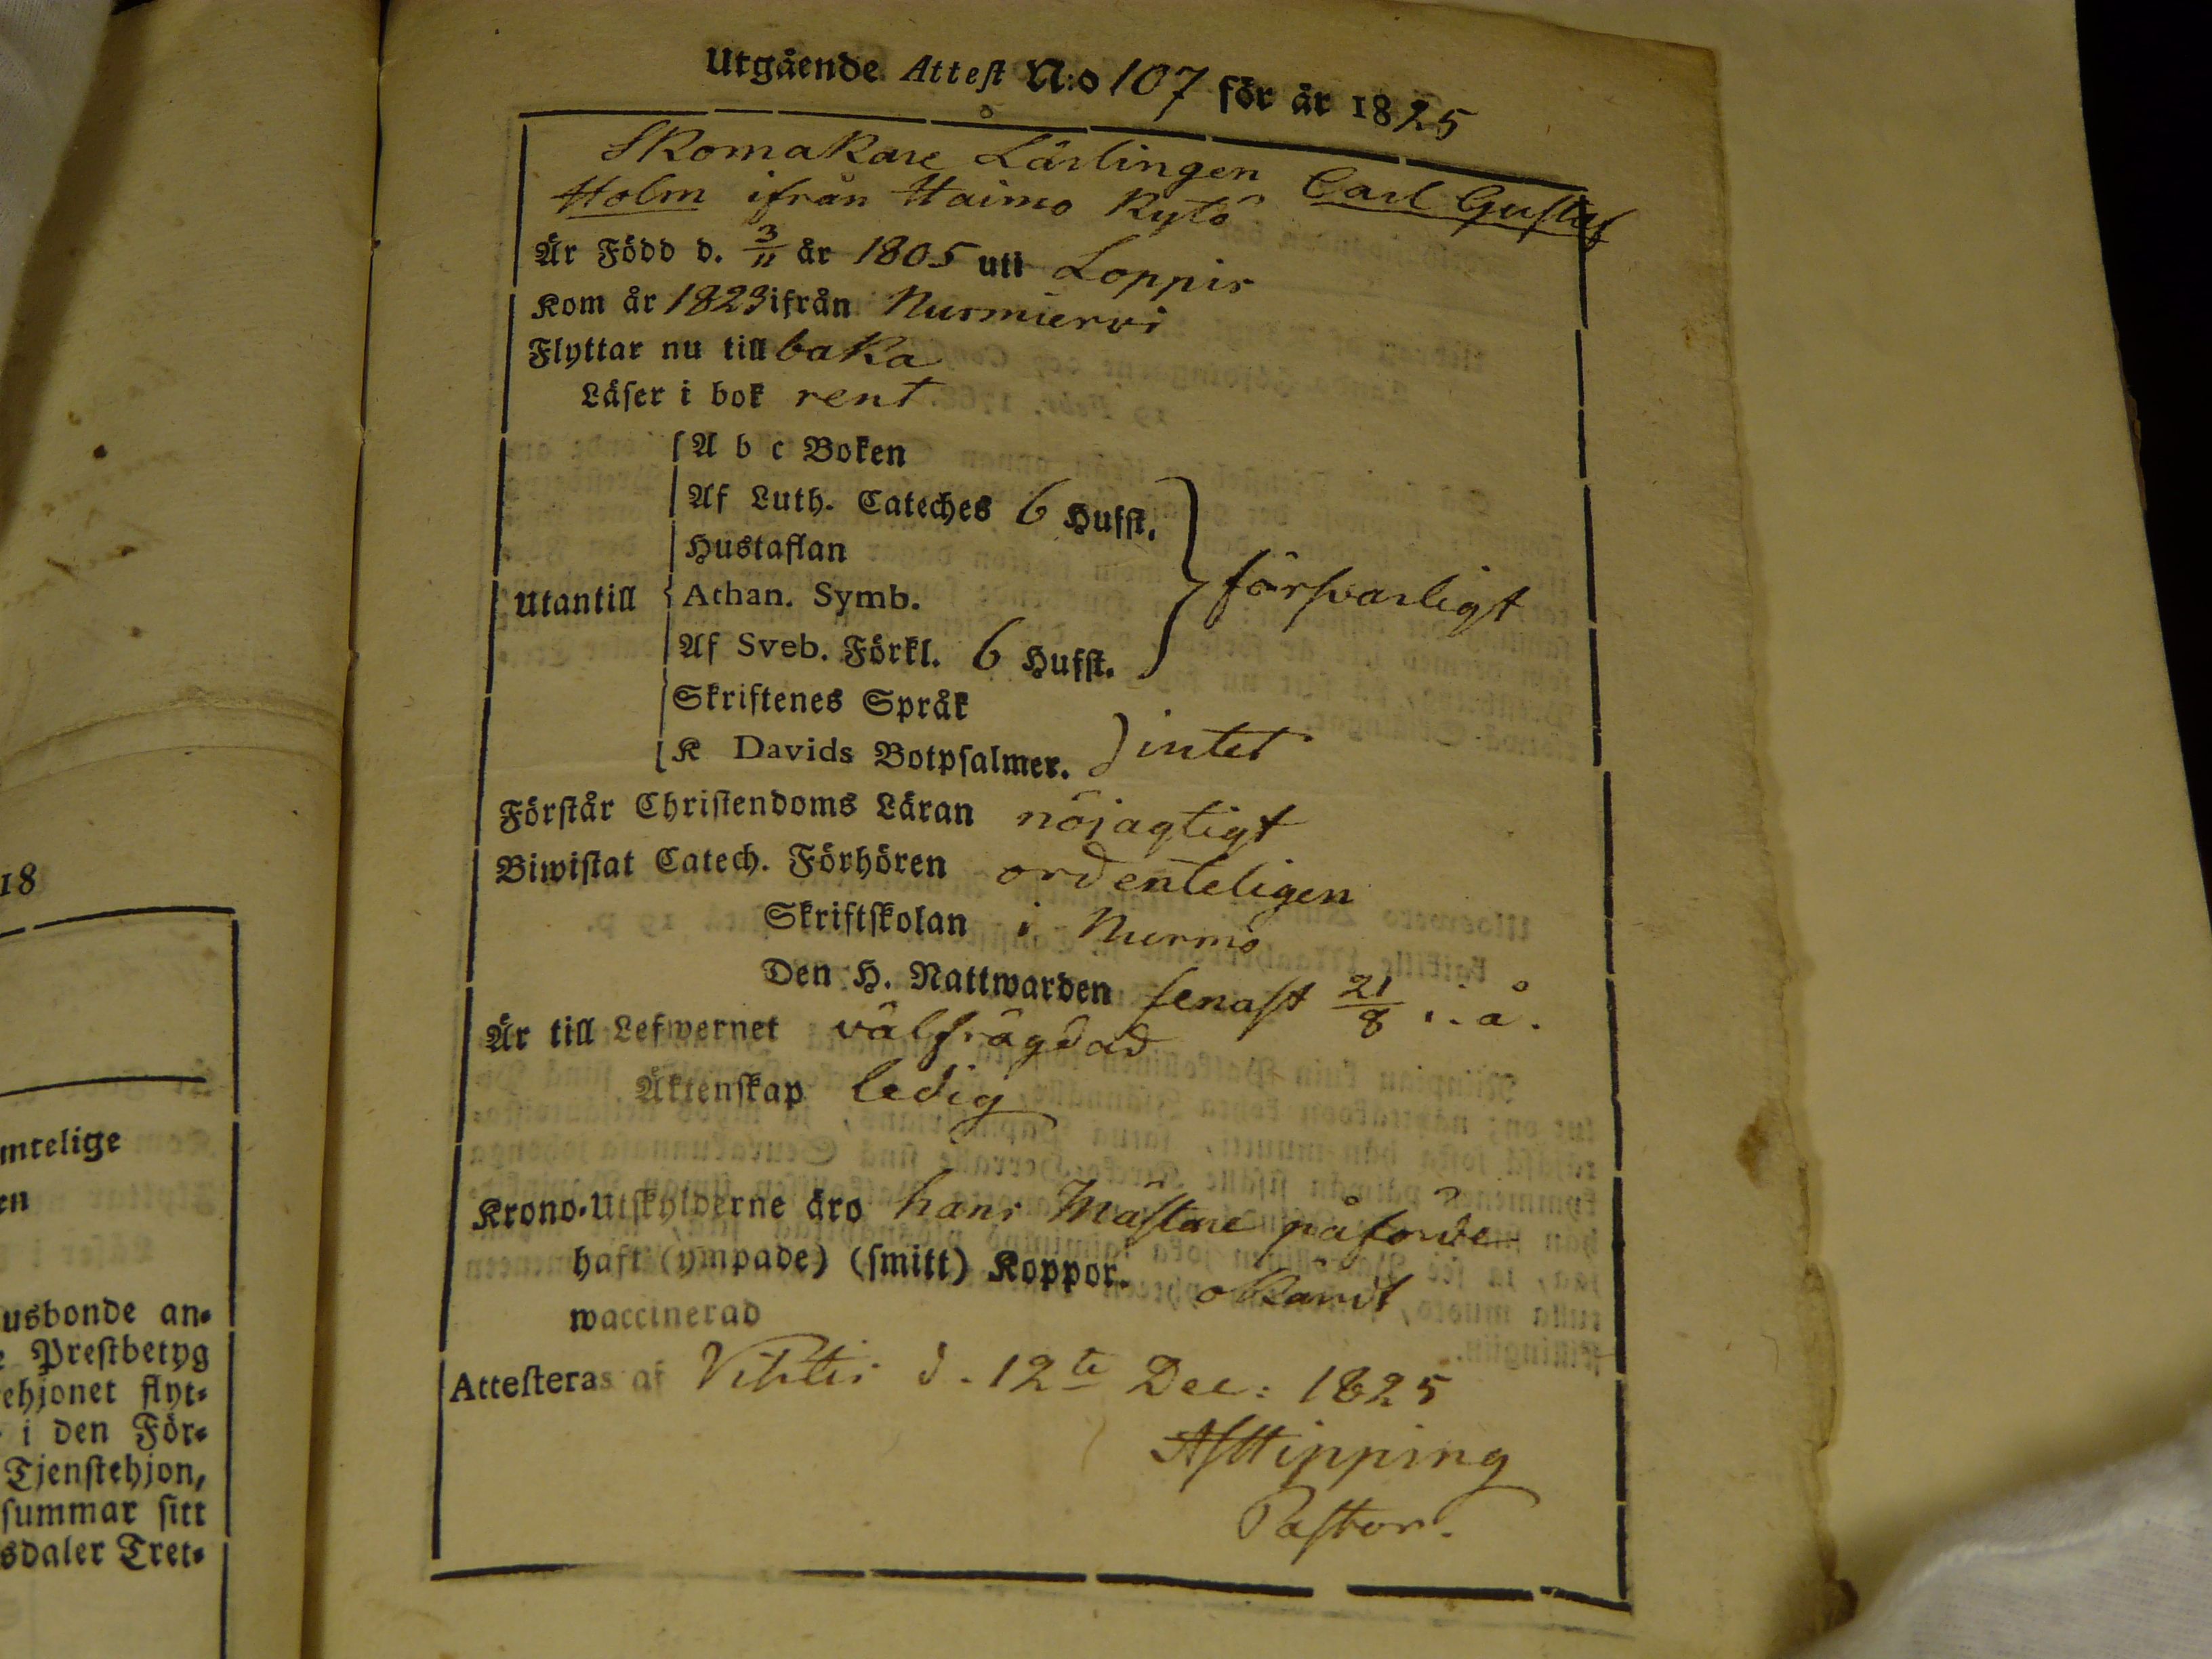 Utgående Attest N:o 107 för år 1825
Skomakare Lärlingen Carl Gustaf
Holm ifrån Haimo Kytö
Är Född d. 3/11 år 1805 uti Loppis
Kom år 1823 ifrån Nurmiervi
Flyttar nu tillbaka
Läser i bok rent
A b c Boken
Af Luth. Cateches 6 Hufst.
Hustaflan
Utantill Athan. Symb. försvarligt
Af Sveb. Förkl. 6 Hufst.
Skriftenes Språk
K Davids Botpsalmer. intet
Förstår Christendoms Läran nöjagtigt
Biwistat Catech. Förhören ordenteligen
Skriftskolan i Nurmö
Den H. Nattwarden senast 21/8 i. å.
Är till Lefwernet välfrägdad
Äktenskap ledig
Krono-Utskylderne äro hans Mästare påförde
haft (ympade) (smitt) Koppor. okändt
waccinerad
Attesteras af Vihtis d. 12te Dec: 1825
AHipping
Pastor.
18
mtelige
en
usbonde an-
e Prestbetyg
ehjonet flyt-
i den För-
Tjenstehjon,
summar sitt
sdaler Tret-